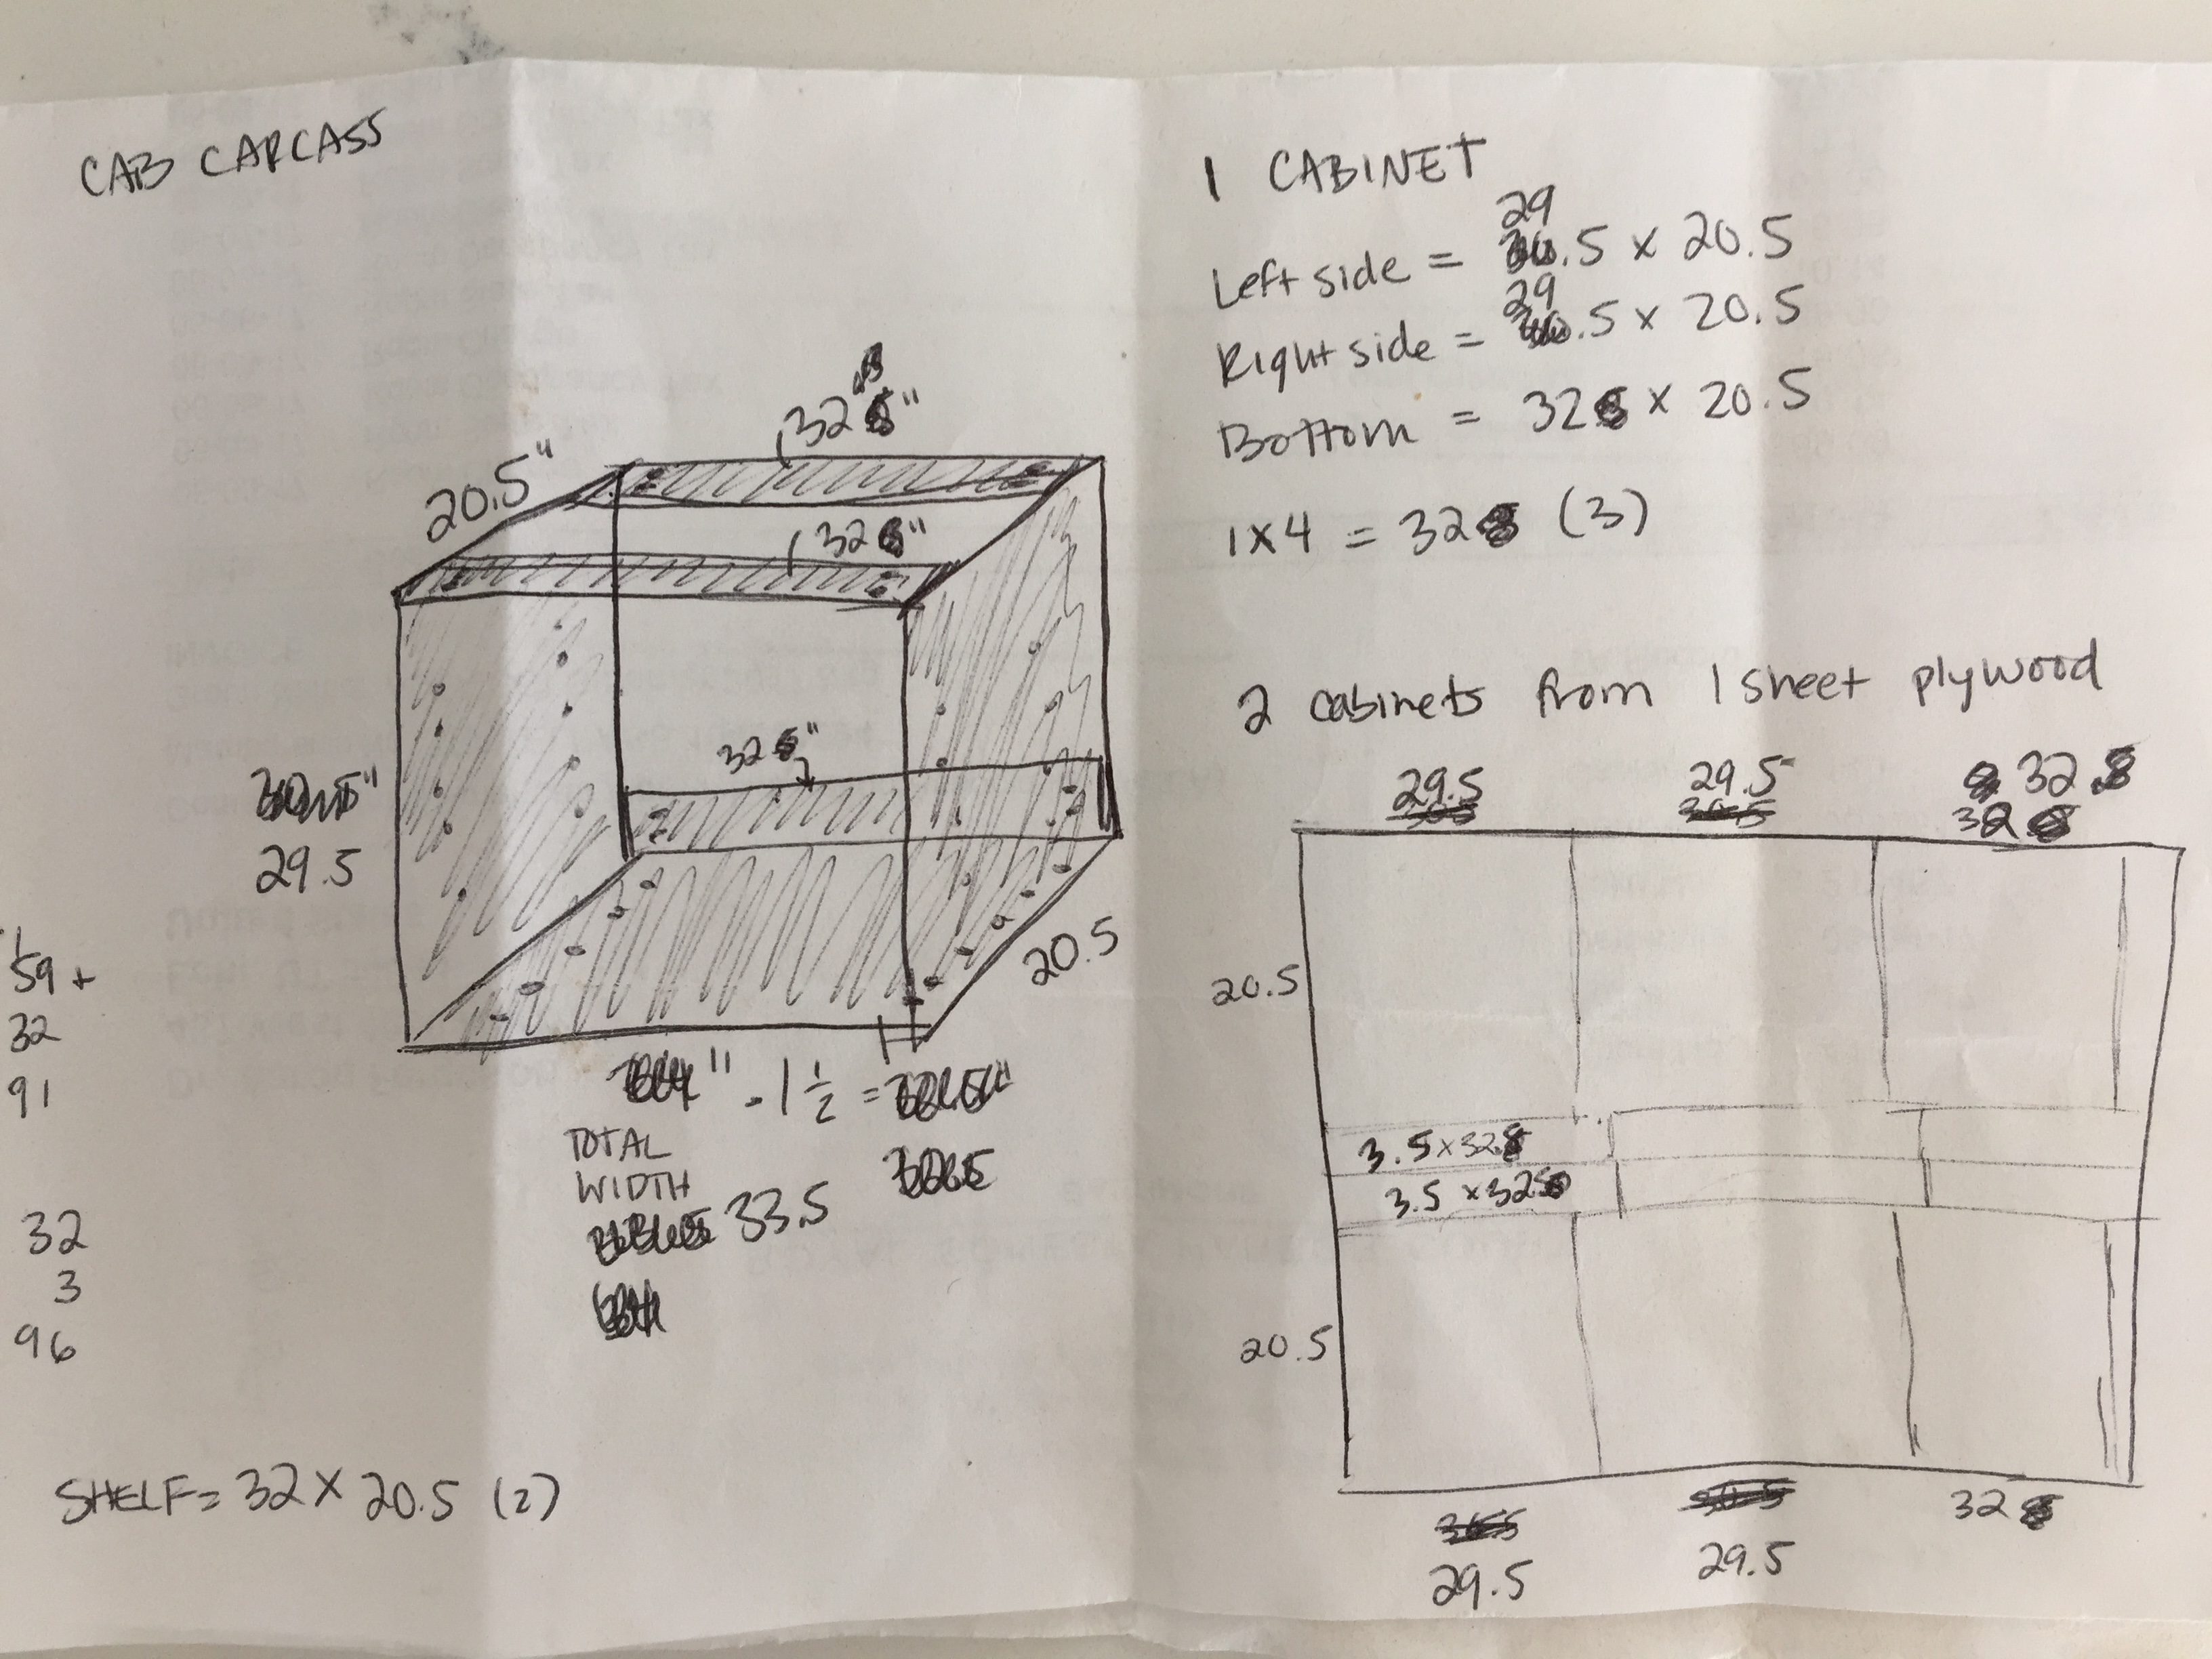 CAB CARCASS
32"
20.5"
32"
32"
29.5
20.5
" - 1 1/2 =
TOTAL
WIDTH
33.5
59 +
32
91
32
3
96
SHELF = 32 X 20.5 (2)
1 CABINET
29
Left side = .5 x 20.5
29
Right side = .5 x 20.5
Bottom = 32 x 20.5
1X4 = 32 (3)
2 cabinets from 1 sheet plywood
29.5 29.5 32
32
20.5
3.5 x 32
3.5 x 32
20.5
32
29.5 29.5